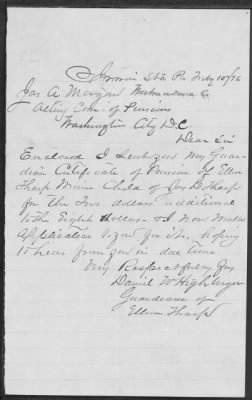 Irwin Sta Pa July 10/76
Jas A
Acting Com. of Pensions
Washington City D.C.
Dear Sir
Enclosed I send you My Guar-
dian Certificate of Pension of Ellen
Tharp Minor Child of D Tharp
for the Two dollars additional
to the Eight dollars & I now Make
application to you for it hoping
to hear from you in due time
Very Respectfully Yours
Daniel W
Guardian of
Ellen Tharp